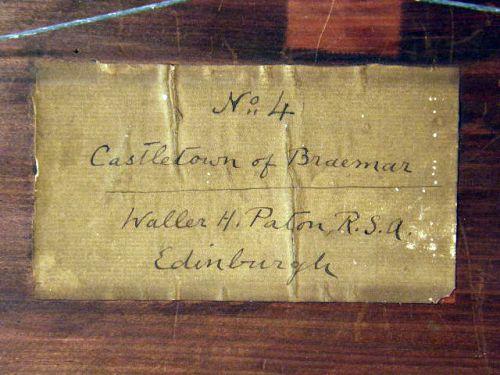 No 4
Castletown of Braemar
Waller H. Paton, R.S.A.
Edinburgh